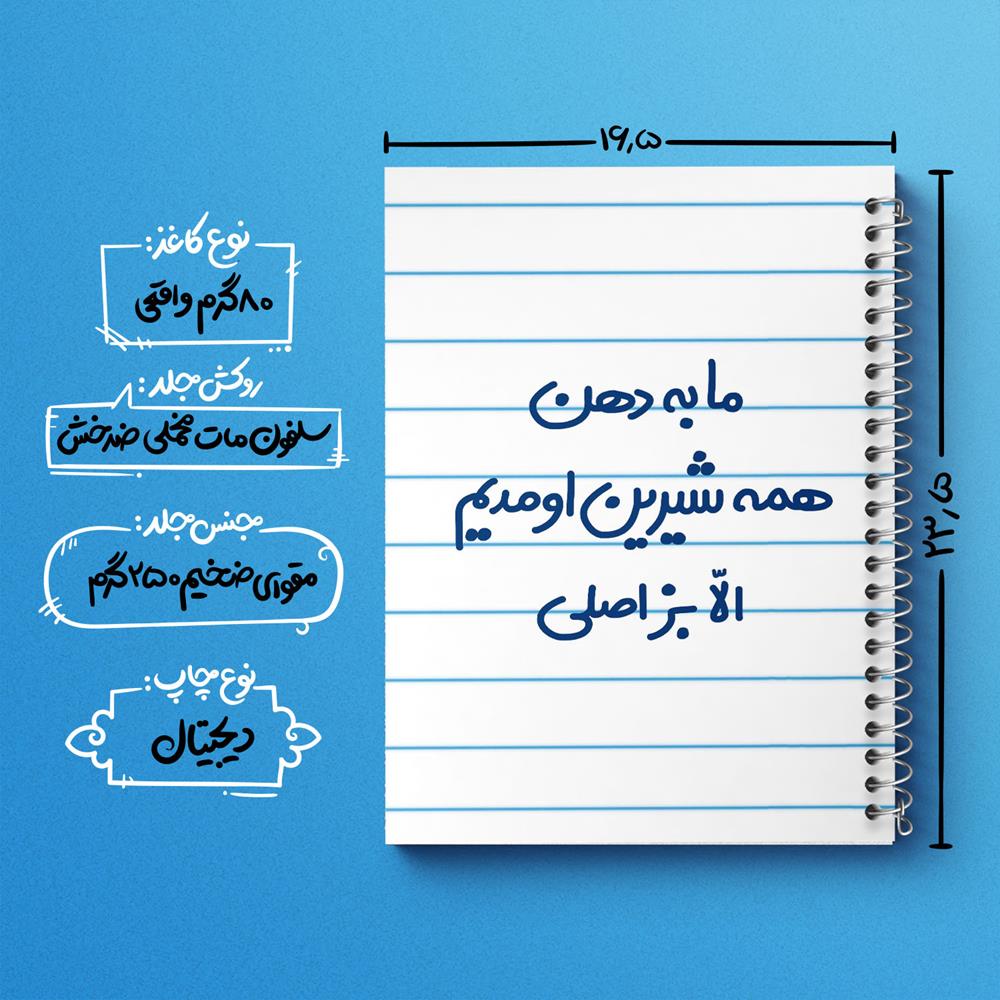 ۱۶٫۵
۲۳٫۵
نوع کاغذ:
۸۰ گرم واقعی
روکش جلد:
سلفون مات مخملی ضدخش
جنس جلد:
مقوای ضخیم ۲۵۰ گرم
نوع چاپ:
دیجیتال
ما به دهن
همه شیرین اومدیم
الّا بز اصلی